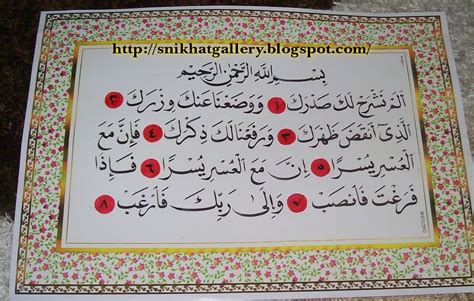 http://snikhatgallery.blogspot.com/
بِسْمِ اللهِ الرَّحْمٰنِ الرَّحِيْمِ
اَلَمْ نَشْرَحْ لَكَ صَدْرَكَ ١ وَوَضَعْنَا عَنْكَ وِزْرَكَ ٢
الَّذِىْ اَنْقَضَ ظَهْرَكَ ٣ وَرَفَعْنَا لَكَ ذِكْرَكَ ٤ فَاِنَّ مَعَ
الْعُسْرِ يُسْرًا ٥ اِنَّ مَعَ الْعُسْرِ يُسْرًا ٦ فَاِذَا
فَرَغْتَ فَانْصَبْ ٧ وَاِلٰى رَبِّكَ فَارْغَبْ ٨